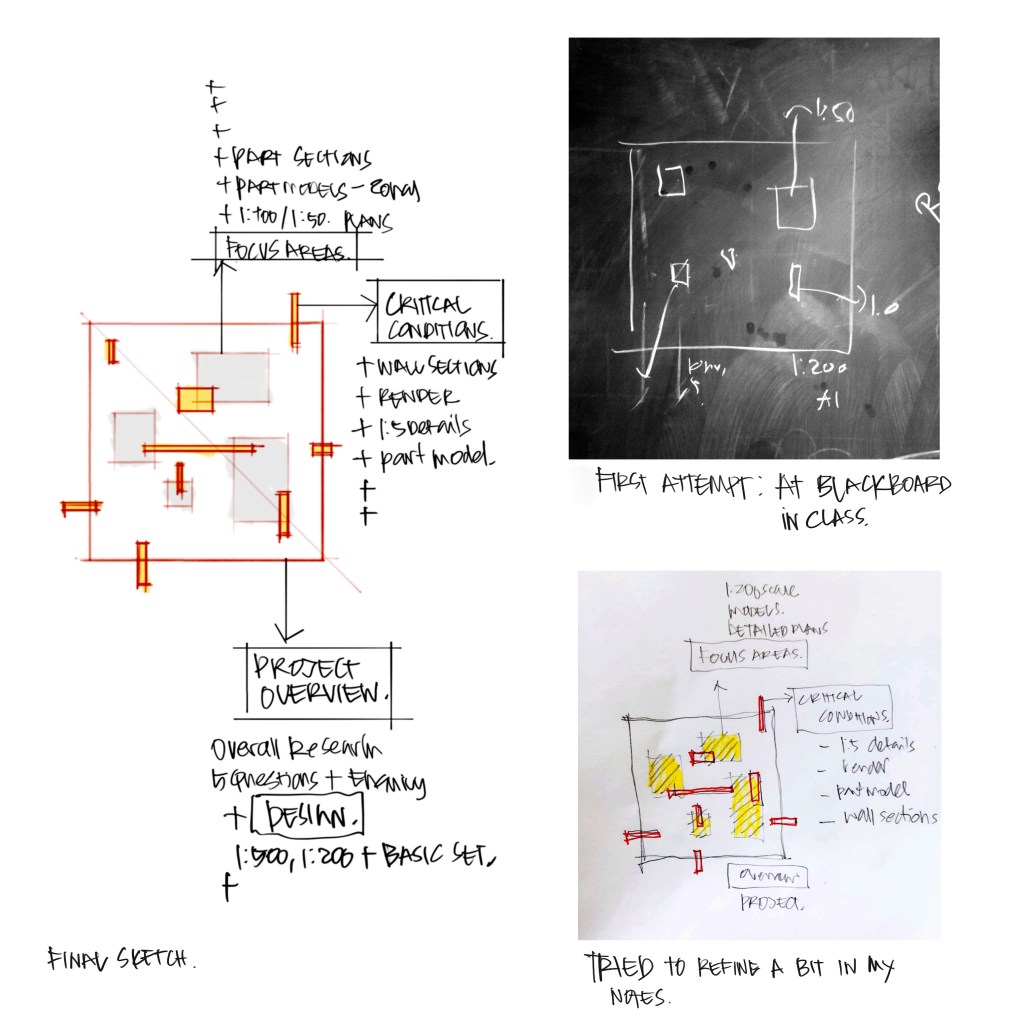 +
+
+
+ PART SECTIONS
+ PART MODELS -
+ 1:100/1:50. PLANS
FOCUS AREAS.
CRITICAL
CONDITIONS.
+ WALL SECTIONS
+ RENDER
+ 1:5 Details
+ part model.
+
+
PROJECT
OVERVIEW.
Overall Research
5 Questions +
+ DESIGN.
1:500, 1:200 + BASIC SET.
+
FINAL SKETCH.
1:50
1:200
A1
FIRST ATTEMPT: AT BLACKBOARD
IN CLASS.
1:200 scale
MODELS.
DETAILED PLANS
FOCUS AREAS.
CRITICAL
CONDITIONS.
- 1:5 details
- render
- part model
- wall sections
Overview
PROJECT.
TRIED TO REFINE A BIT IN MY
NOTES.